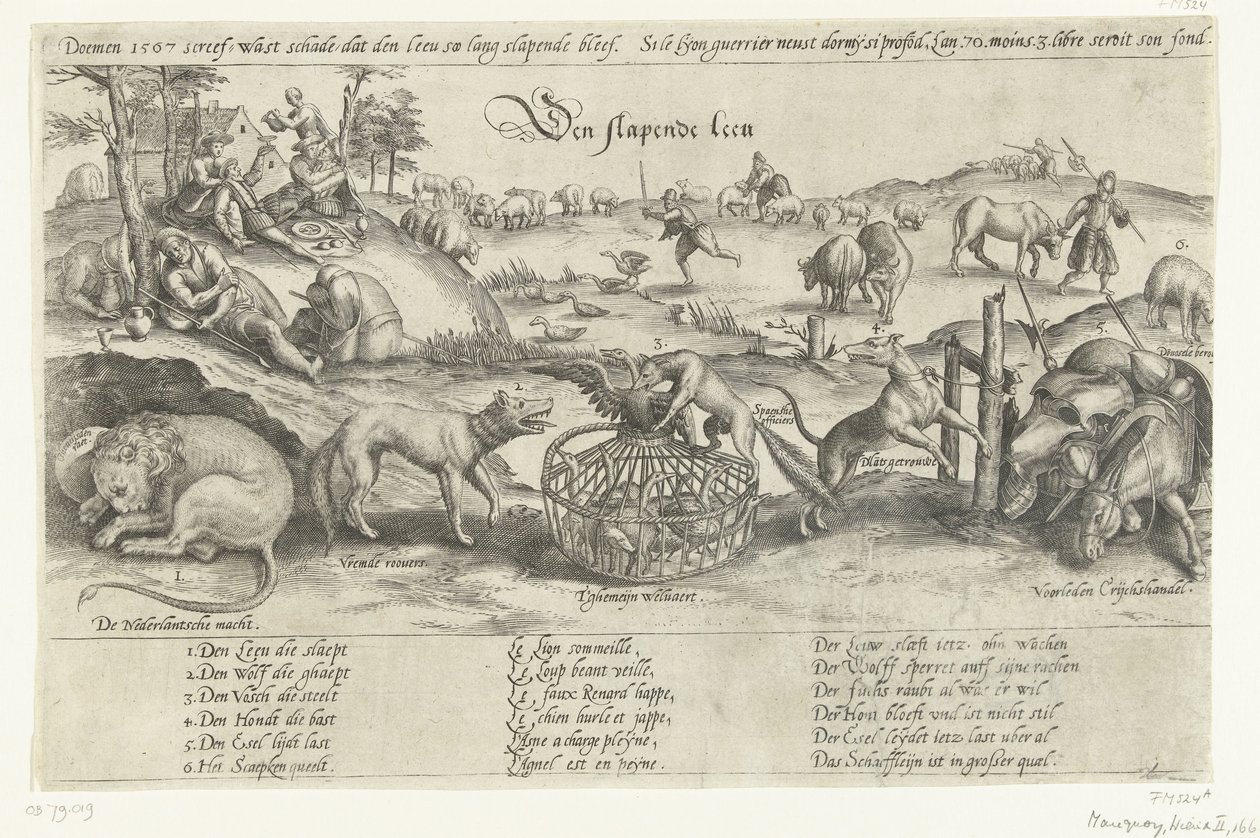 FM524
Doemen 1567 screef, wast schade, dat den leeu soo lang slapende bleef. Si le lÿon guerrier neust dormÿ si profōd, Lan .70. moins .3. libre seroit son fond.
Den slapende leeu
6.
5.
4.
3.
2.
Spaenshe officiers
Dlāts getrouwe
Vremde roovers.
T'ghemeijn welvaert.
Voorleden Crijchshandel.
1.
De Nederlantsche macht.
1. Den Leeu die slaept
2. Den Wolf die ghaept
3. Den Vosch die steelt
4. Den Hondt die bast
5. Den Esel lijdt last
6. Het Scaepken queelt.
Le Lion sommeille,
Le Loup beant veille,
Le faux Renard happe,
Le chien hurle et jappe,
L'Asne a charge pleÿne,
L'Agnel est en peÿne.
Der Leuw slæft ietz ohn wachen
Der Wolff sperret auff sijne rachen
Der fuchs raubt al was er wil
Der Hont bloeft vnd ist nicht stil
Der Esel leÿdet ietz last vber al
Das Schaeffleijn ist in grosser quæl.
OB 79.019
FM524A